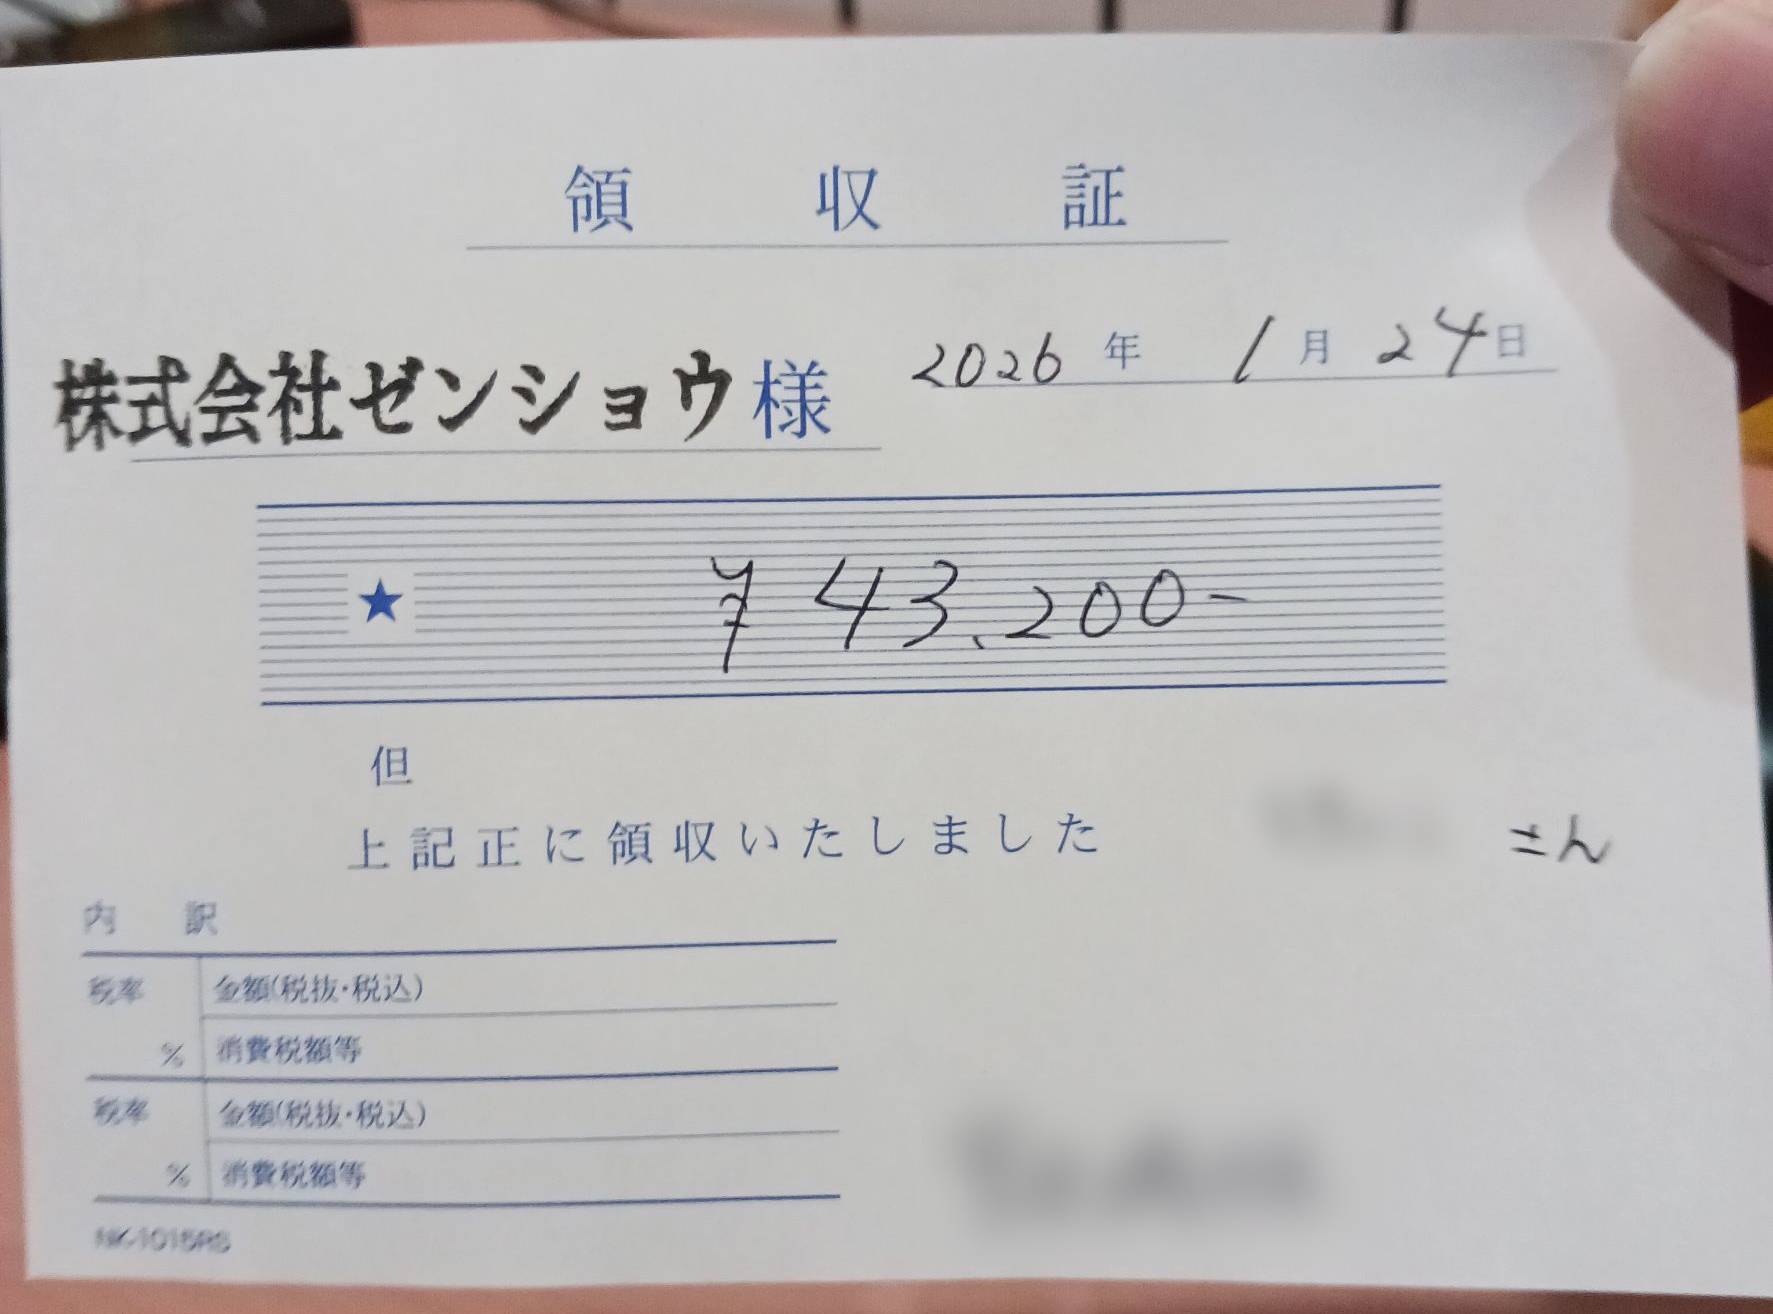 領収証
株式会社ゼンショウ様
2026年1月24日
★ ¥43,200-
但
上記正に領収いたしました
さん
内訳
税率 金額(税抜・税込)
% 消費税額等
税率 金額(税抜・税込)
% 消費税額等